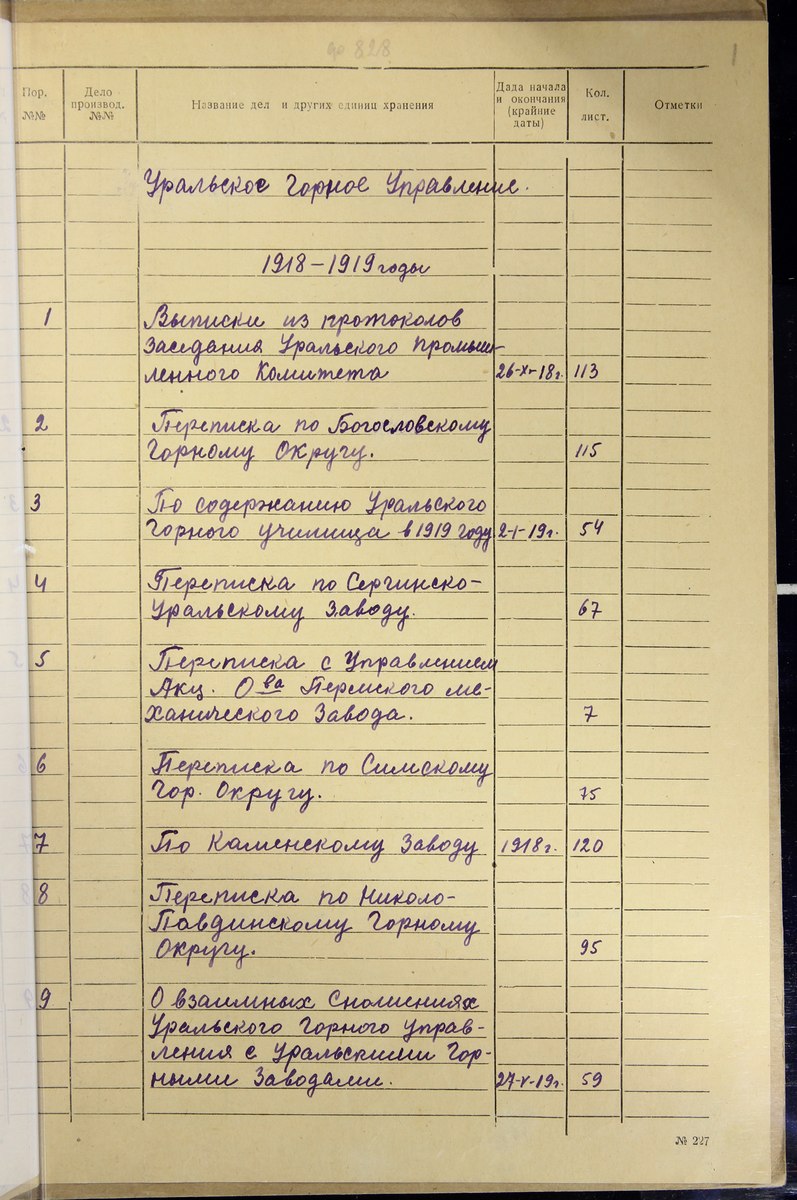 до 828
1
Пор.
№№
Дело
производ.
№№
Название дел и других единиц хранения
Дада начала
и окончания
(крайние
даты)
Кол.
лист.
Отметки
Уральское Горное Управление.
1918-1919 годы
1 Выписки из протоколов
заседания Уральского Промыш-
ленного Комитета 26-XI-18г. 113
2 Переписка по Богословскому
Горному Округу. 115
3 По содержанию Уральского
Горного училища в 1919 году. 2-I-19г. 54
4 Переписка по Сергинско-
Уральскому Заводу. 67
5 Переписка с Управлением
Акц. О ва Пермского ме-
ханического Завода. 7
6 Переписка по Симскому
Гор. Округу. 75
7 По Каменскому Заводу 1918г. 120
8 Переписка по Николо-
Павдинскому Горному
Округу. 95
9 О взаимных Сношениях
Уральского Горного Управ-
ления с Уральскими Гор-
ными Заводами. 27-V-19г. 59
№ 227